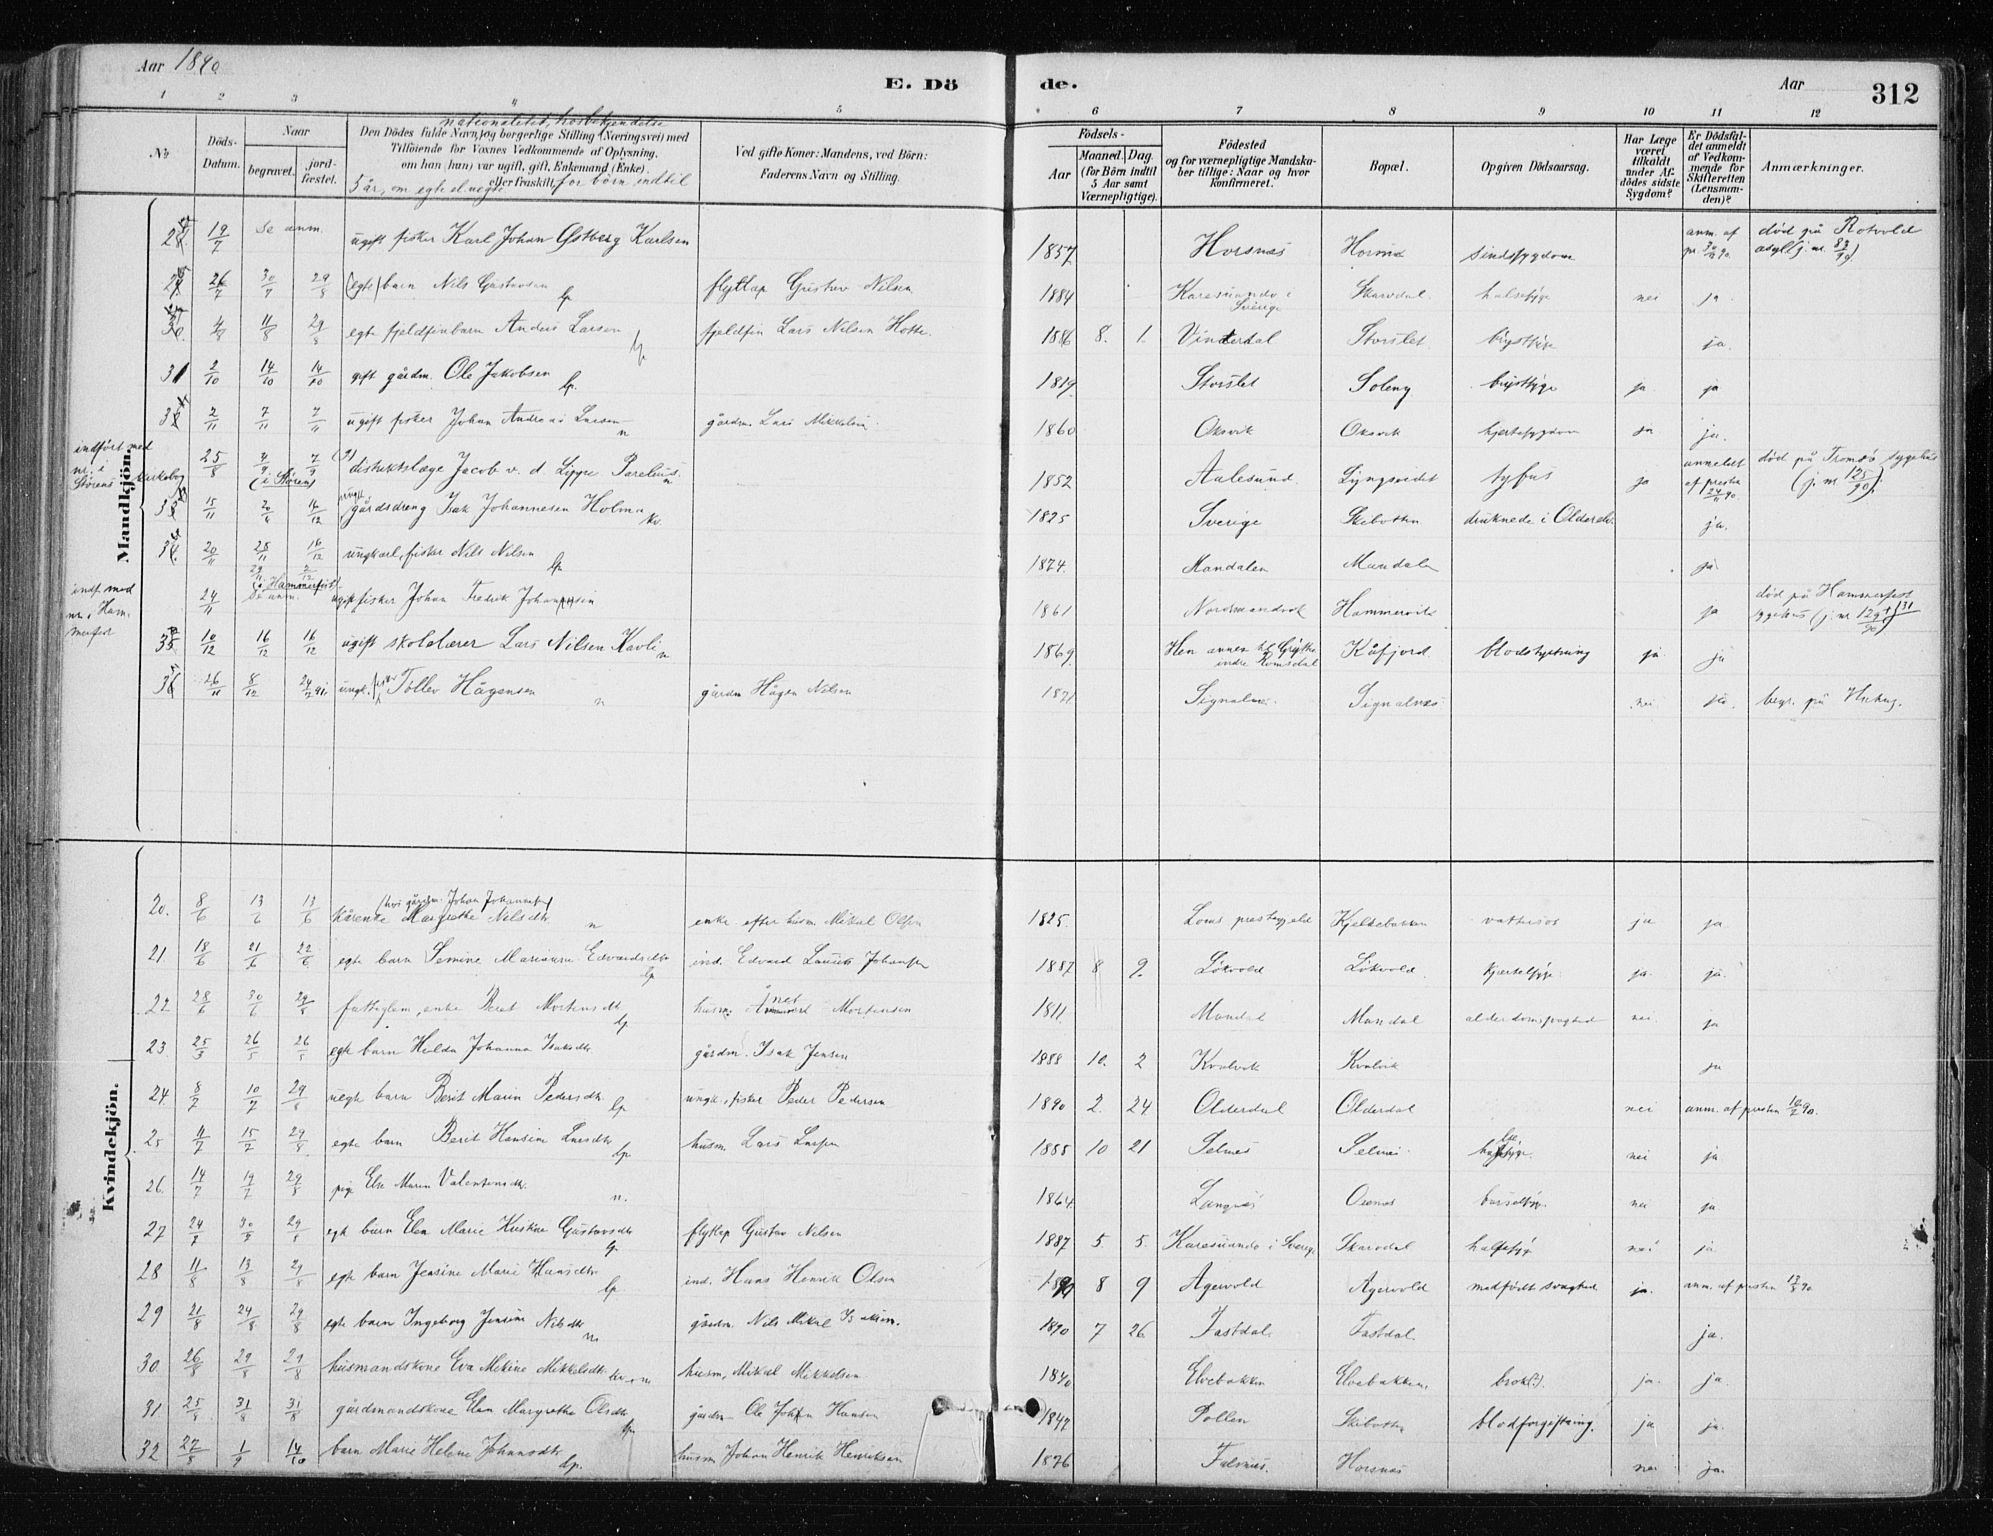 Aar 1890
E. Dö
de.
Aar
312
1 2 3 4 5 6 7 8 9 10 11 12
No
Döds-Datum.
Naar
begravet.
jord-fæstet.
nationalitet, trosbekjendelse
Den Dödes fulde Navn og borgerlige Stilling (Næringsvei) med
Tilföiende for Voxnes Vedkommende af Oplysning,
om han (hun) var ugift, gift, Enkemand (Enke)
eller fraskilt, for börn indtil
5 år, om egte el. uegte
Ved gifte Koner: Mandens, ved Börn:
Faderens Navn og Stilling.
Födsels-
Aar
Maaned. Dag.
(for Börn indtil
5 Aar samt
Værnepligtige).
Födested
og for værnepligtige Mandska-
ber tillige: Naar og hvor
konfirmeret.
Bopæl.
Opgiven Dödsaarsag.
Har Læge
været
tilkaldt
under Af-
dödes sidste
Sygdom?
Er Dödsfal-
det anmeldt
af Vedkom-
mende for
Skifteretten
(Lensman-
den)?
Anmærkninger.
Mandkjön.
19/7 se anm. ugift fisker Karl Johan Østberg Karlsen 1857 Horsnæs Horsnæs sindssygdom anm. af død på Rotvold asyl (j. nr. 83/90)
26/7 30/7 29/8 (egte) barn Nils Gustavsen lp flytlap Gustav Nilsen 1884 Karesuando i Sverige Skarvdal halssyge nei ja
4/8 11/8 29/8 egte fjeldfinbarn Anders Larsen lp fjeldfin Lars Nilsen Hotte. 1886 8. 1. Storslet brystsyge ja.
31 2/10 14/10 14/10 gift gårdm. Ole Jakobsen lp. 1819 Storslet brystsyge ja ja
2/11 7/11 7/11 ugift fisker Johan Andreas Larsen n gårdm. Lars Mikkelsen 1860 Oksvik Oksvik hjertesygdom ja ja.
indført med nr. i Störens kirkebog
25/8 4/9 7/9 (i Støren) distriktslæge Jacob v. d. Lippe Parelius n 1852 Aalesund Lyngseidet tyfus ja anmeldt af presten død på Tromsø sygehus (j. nr 125/90).
15/11 16/12 ungk. gårdsdreng Isak Johannesen Holma kv. 1825 Sverige Skibotten druknede i Olderelv. ja.
20/11 28/11 16/12 ungkarl, fisker Nils Nilsen lp 1874. Mandalen Mandalen ja
indf. med nr. i Hammerfest
24/11 29/11 2/12 (i Hammerfest) se anm. ugift fisker Johan Fredrik Johannesen 1861 Nordmandvik Hammervik ja død på Hammerfest sygehus (j. nr 129+131/90)
10/12 16/12 16/12 ugift skolelærer Lars Nilsen Kavli n 1869. Hen annex til Grytten indre Romsdal Kåfjord. blodstyrtning ja ja
26/11 8/12 ungk. fisker Tollev Hågensen n gårdm Hågen Nilsen 1871 Signalnes. Signalnæs nei ja. begr. på
Kvindekjön.
20. 8/6 13/6 13/6 (hos gårdm. Johan Johannesen) kårenke Margrethe Nilsdtr n enke efter husm. Mikal Olsen 1825. Loms prestegjeld Kjelkebakken vattersot ja ja
21. 18/6 21/6 22/6 egte barn Semine Marianne Edvardsdtr lp ind. Edvard Laurits Johansen 1887 8 9. Løkvold Løkvold kjertelsyge ja. ja.
22 28/6 30/6 29/8 fattiglem, enke Beret Mortensdtr lp husm. Mortensen 1811 Mandal Mandal alderdomssvaghed nei. ja
23 26/5 26/5 egte barn Hilda Johanna Isaksdtr gårdm. Isak Jensen 1888 10. 2 Kvalvik Kvalvik ja
24. 8/7 10/7 29/8 uegte barn Berit Marin Pedersdtr. lp ungk., fisker Peder Pedersen 1890 2. 24. Olderdal Olderdal nei anm. af presten
25 11/7 15/7 29/8 egte barn Berit Hansine Larsdtr lp husm. Lars Larsen 1885 10 21 Selnes Selnes halssyge. nei ja
26. 14/7 19/7 29/8 pige Else Maren Valentinsdtr. n. 1864 Langnæs barselsyge nei ja
27 24/7 30/7 29/8 egte barn Elen Marie Kristine Gustavsdtr lp flytlap Gustav Nilsen 1887 5. 5. Karesuando i Sverige Skarvdal halssyge nei ja
28 11/8 13/8 29/8 egte barn Jensine Marie Hansdtr lp ind. Hans Henrik Olsen 1890 8 9 Agervold Agervold medfødt svaghed ja. anm. af presten 13/8 90
29 21/8 24/8 29/8 egte barn Ingeborg Jensine Nilsdtr n. gårdm. Nils Mikal Isaksen. 1890 7 26. Fastdal Fastdal ja.
30 26/8 29/8 29/8 husmandskone Eva Mikine Mikkelsdtr kv.+n husm. Mikal Mikkelsen 1840 Elvebakken Elvebakken. brok(?). ja. ja.
31. 25/8 31/8 31/8 gårdmandskone Elen Margrethe Olsdtr lp. gårdm Ole Johan Hansen 1847 Pollen Skibotten blodforgiftning. ja ja.
32 27/8 1/9 14/10 barn Marie Helene Johansdtr lp. husm Johan Henrik Henriksen 1876 Falsnes. Horsnæs nei ja.